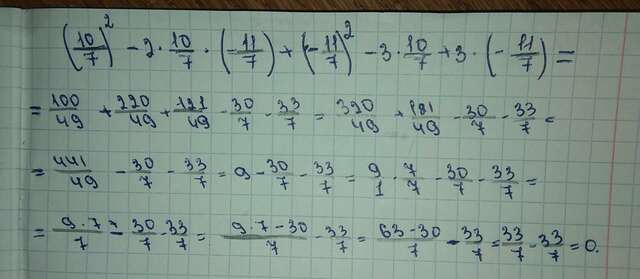 (10/7)² - 2 · 10/7 · (-11/7) + (-11/7)² - 3 · 10/7 + 3 · (-11/7) =
= 100/49 + 220/49 + 121/49 - 30/7 - 33/7 = 320/49 + 121/49 - 30/7 - 33/7 =
= 441/49 - 30/7 - 33/7 = 9 - 30/7 - 33/7 = 9/1 · 7/7 - 30/7 - 33/7 =
= 9·7/7 - 30/7 - 33/7 = 9·7-30/7 - 33/7 = 63-30/7 - 33/7 = 33/7 - 33/7 = 0.